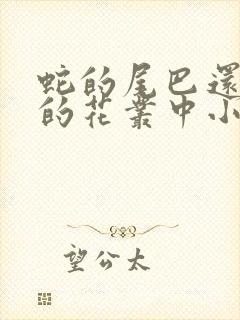 蛇的尾巴還
的花叢中小
望公太